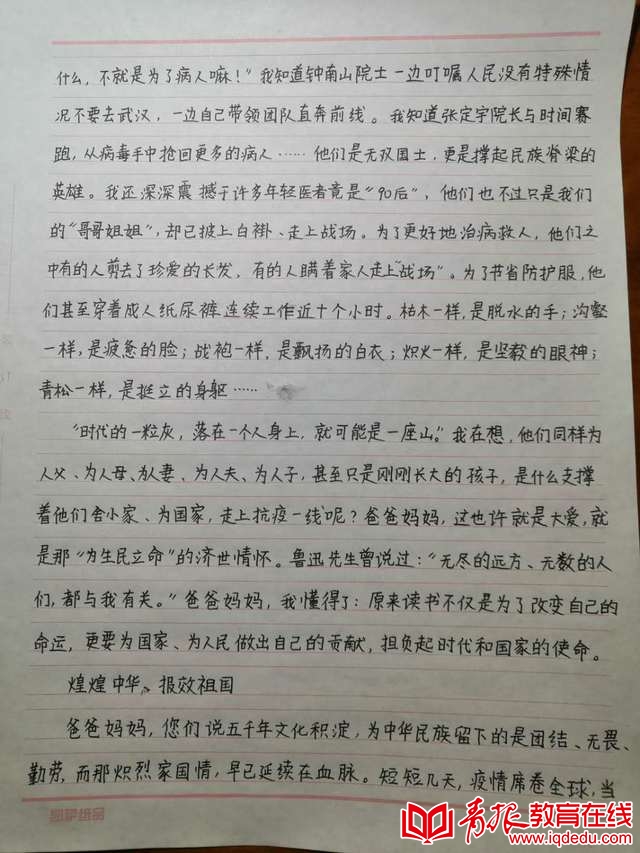 什么，不就是为了病人嘛！”我知道钟南山院士一边叮嘱人民没有特殊情
况不要去武汉，一边自己带领团队直奔前线。我知道张定宇院长与时间赛
跑，从病毒手中抢回更多的病人……他们是无双国士，更是撑起民族脊梁的
英雄。我还深深震撼于许多年轻医者竟是“90后”，他们也不过只是我们
的“哥哥姐姐”，却已披上白褂、走上战场。为了更好地治病救人，他们之
中有的人剪去了珍爱的长发，有的人瞒着家人走上“战场”。为了节省防护服，他
们甚至穿着成人纸尿裤连续工作近十个小时。枯木一样，是脱水的手；沟壑
一样，是疲惫的脸；战袍一样，是飘扬的白衣；炽火一样，是坚毅的眼神；
青松一样，是挺立的身躯……
“时代的一粒灰，落在一个人身上，就可能是一座山。”我在想，他们同样为
人父、为人母、为人妻、为人夫、为人子，甚至只是刚刚长大的孩子，是什么支撑
着他们舍小家、为国家，走上抗疫一线呢？爸爸妈妈，这也许就是大爱，就
是那“为生民立命”的济世情怀。鲁迅先生曾说过：“无尽的远方、无数的人
们，都与我有关。”爸爸妈妈，我懂得了：原来读书不仅是为了改变自己的
命运，更要为国家、为人民做出自己的贡献，担负起时代和国家的使命。
煌煌中华、报效祖国
爸爸妈妈，您们说五千年文化积淀，为中华民族留下的是团结、无畏、
勤劳，而那炽烈家国情，早已延续在血脉。短短几天，疫情席卷全球，当
青报教育在线
www.iqdedu.com